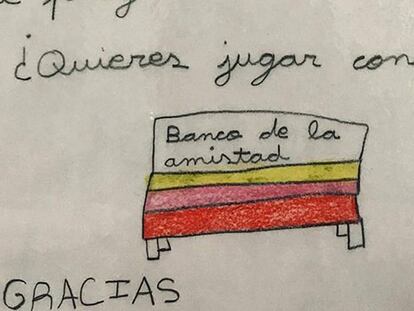 ¿Quieres jugar con
Banco de la
amistad
GRACIAS